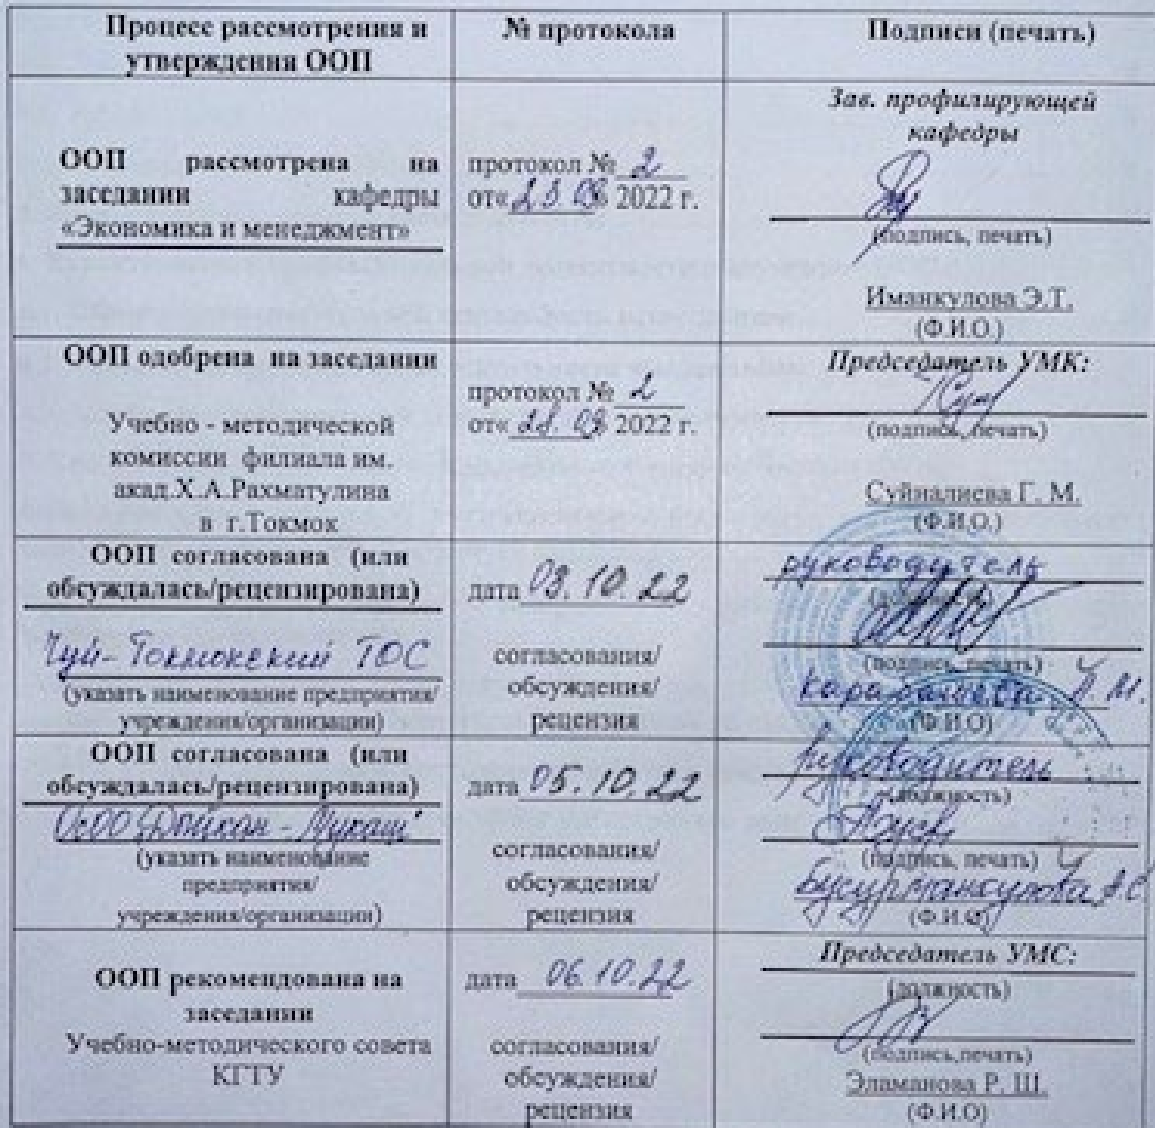 Процесс рассмотрения и
утверждения ООП
№ протокола
Подписи (печать)
ООП рассмотрена на
заседании кафедры
«Экономика и менеджмент»
протокол № 2
от« 2022 г.
Зав. профилирующей
кафедры
(подпись, печать)
Иманкулова Э.Т.
(Ф.И.О.)
ООП одобрена на заседании
Учебно - методической
комиссии филиала им.
акад.Х.А.Рахматулина
в г.Токмок
протокол № 2
от« 2022 г.
Председатель УМК:
(подпись, печать)
Суйналиева Г. М.
(Ф.И.О.)
ООП согласована (или
обсуждалась/рецензирована)
Чуй-Токмокский ТОС
(указать наименование предприятия/
учреждения/организации)
дата 03.10.22
согласования/
обсуждения/
рецензия
руководитель
(должность)
(подпись, печать)
(Ф.И.О)
ООП согласована (или
обсуждалась/рецензирована)
ОсОО
(указать наименование
предприятия/
учреждения/организации)
дата 05.10.22
согласования/
обсуждения/
рецензия
Руководитель
(должность)
(подпись, печать)
Бусурманкулова
(Ф.И.О)
ООП рекомендована на
заседании
Учебно-методического совета
КГТУ
дата 06.10.22
согласования/
обсуждения/
рецензия
Председатель УМС:
(должность)
(подпись,печать)
Эламанова Р. Ш.
(Ф.И.О)